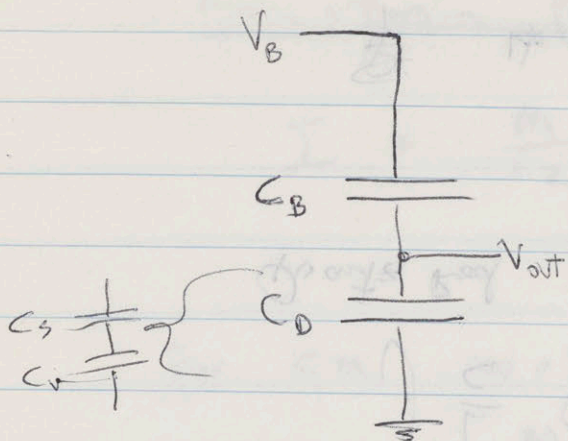 V_B
C_B
V_out
C_D
C_s
C_v